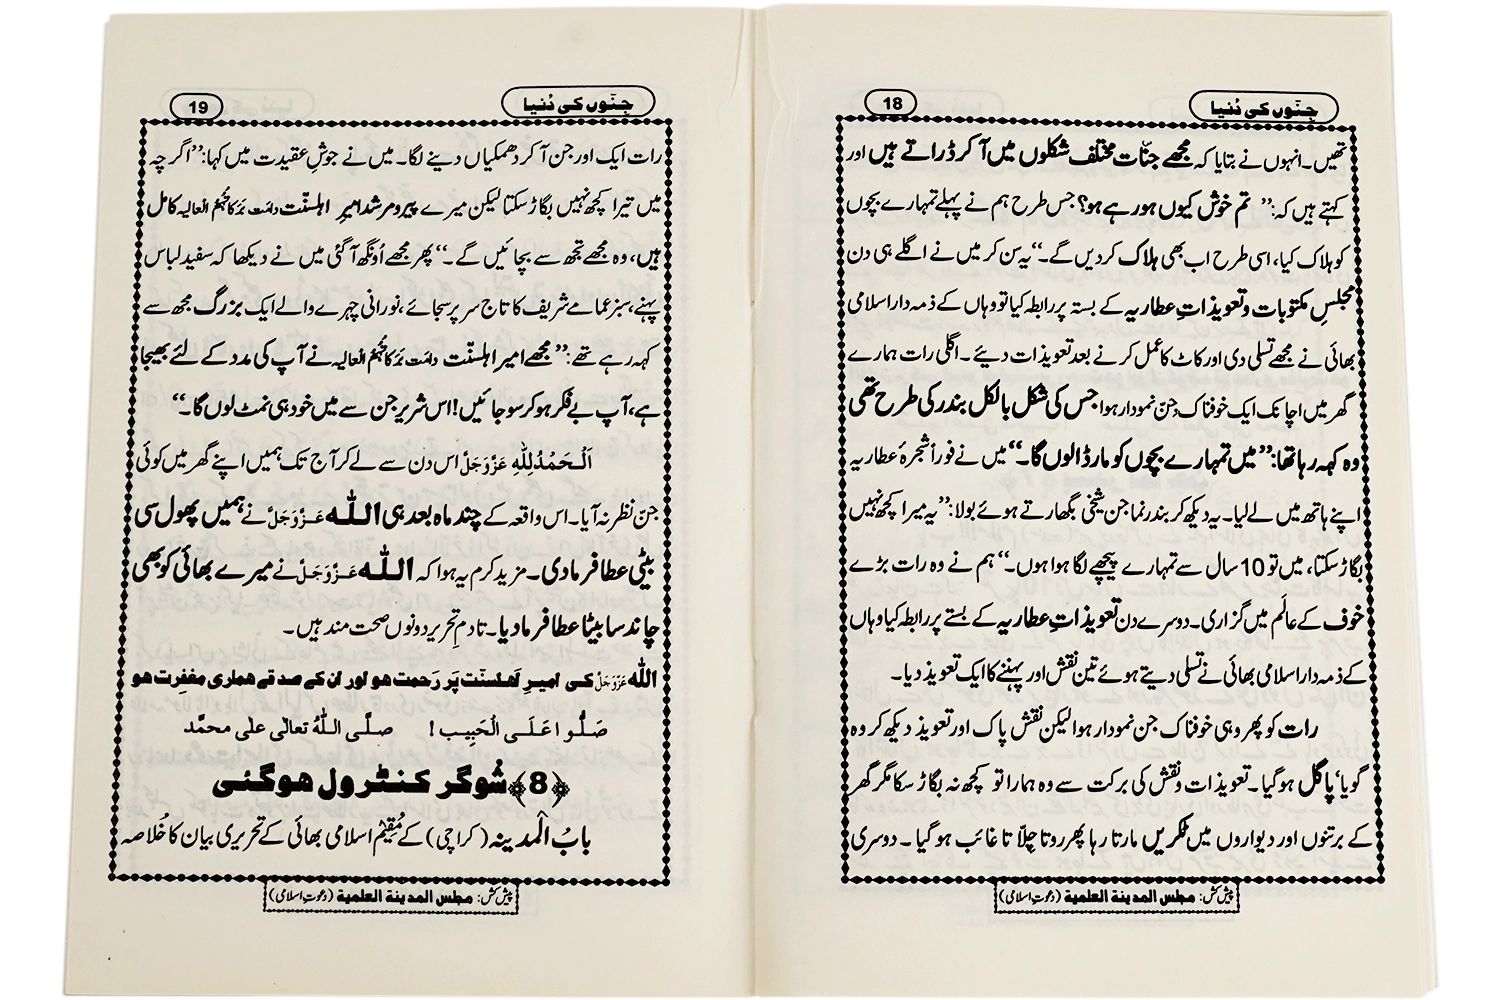 جنّوں کی دُنیا
18
تھیں۔ انہوں نے بتایا کہ مجھے جنّات مختلف شکلوں میں آ کر ڈراتے ہیں اور
کہتے ہیں کہ: ”تم خوش کیوں ہو رہے ہو؟ جس طرح ہم نے پہلے تمہارے بچوں
کو ہلاک کیا، اسی طرح اب بھی ہلاک کر دیں گے۔“ یہ سن کر میں نے اگلے ہی دن
مجلسِ مکتوبات و تعویذاتِ عطاریہ کے بستہ پر رابطہ کیا تو وہاں کے ذمہ دار اسلامی
بھائی نے مجھے تسلی دی اور کاٹ کا عمل کرنے بعد تعویذات دیئے۔ اگلی رات ہمارے
گھر میں اچانک ایک خوفناک جن نمودار ہوا جس کی شکل بالکل بندر کی طرح تھی
وہ کہہ رہا تھا: ”میں تمہارے بچوں کو مار ڈالوں گا۔“ میں نے فوراً شجرۂ عطاریہ
اپنے ہاتھ میں لے لیا۔ یہ دیکھ کر بندر نما جن شیخی بگھارتے ہوئے بولا: ”یہ میرا کچھ نہیں
بگاڑ سکتا، میں تو 10 سال سے تمہارے پیچھے لگا ہوا ہوں۔“ ہم نے وہ رات بڑے
خوف کے عالَم میں گزاری۔ دوسرے دن تعویذاتِ عطاریہ کے بستے پر رابطہ کیا وہاں
کے ذمہ دار اسلامی بھائی نے تسلی دیتے ہوئے تین نقش اور پہننے کا ایک تعویذ دیا۔
رات کو پھر وہی خوفناک جن نمودار ہوا لیکن نقش پاک اور تعویذ دیکھ کر وہ
گویا ’پاگل ہو گیا۔ تعویذات و نقش کی برکت سے وہ ہمارا تو کچھ نہ بگاڑ سکا مگر گھر
کے برتنوں اور دیواروں میں ٹکریں مارتا رہا پھر روتا چِلّاتا غائب ہو گیا۔ دوسری
پیش کش: مجلس المدینة العلمیة (دعوتِ اسلامی)
جنّوں کی دُنیا
19
رات ایک اور جن آ کر دھمکیاں دینے لگا۔ میں نے جوشِ عقیدت میں کہا: ”اگرچہ
میں تیرا کچھ نہیں بگاڑ سکتا لیکن میرے پیر و مرشد امیرِ اہلسنّت دامت برکاتہم العالیہ کامل
ہیں، وہ مجھے تجھ سے بچائیں گے۔“ پھر مجھے اُونگھ آ گئی میں نے دیکھا کہ سفید لباس
پہنے، سبز عمامے شریف کا تاج سر پر سجائے، نورانی چہرے والے ایک بزرگ مجھ سے
کہہ رہے تھے: ”مجھے امیرِ اہلسنّت دامت برکاتہم العالیہ نے آپ کی مدد کے لئے بھیجا
ہے، آپ بے فکر ہو کر سو جائیں! اس شریر جن سے میں خود ہی نمٹ لوں گا۔“
اَلْحَمْدُلِلّٰہِ عَزَّوَجَلَّ اس دن سے لے کر آج تک ہمیں اپنے گھر میں کوئی
جنّ نظر نہ آیا۔ اس واقعہ کے چند ماہ بعد ہی اللّٰہ عَزَّوَجَلَّ نے ہمیں پھول سی
بیٹی عطا فرما دی۔ مزید کرم یہ ہوا کہ اللّٰہ عَزَّوَجَلَّ نے میرے بھائی کو بھی
چاند سا بیٹا عطا فرما دیا۔ تا دمِ تحریر دونوں صحت مند ہیں۔
اللّٰہ عَزَّوَجَلَّ کی امیرِ اَہلسنّت پَر رَحمت ہو اور ان کے صدقے ہماری مغفِرت ہو
صَلُّوا عَلَی الْحَبِیب! صلَّی اللّٰہُ تعالٰی علٰی محمَّد
﴿8﴾ شُوگر کنٹرول ہو گئی
بابُ المدینہ (کراچی) کے مُقِیْم اسلامی بھائی کے تحریری بیان کا خُلاصہ
پیش کش: مجلس المدینة العلمیة (دعوتِ اسلامی)